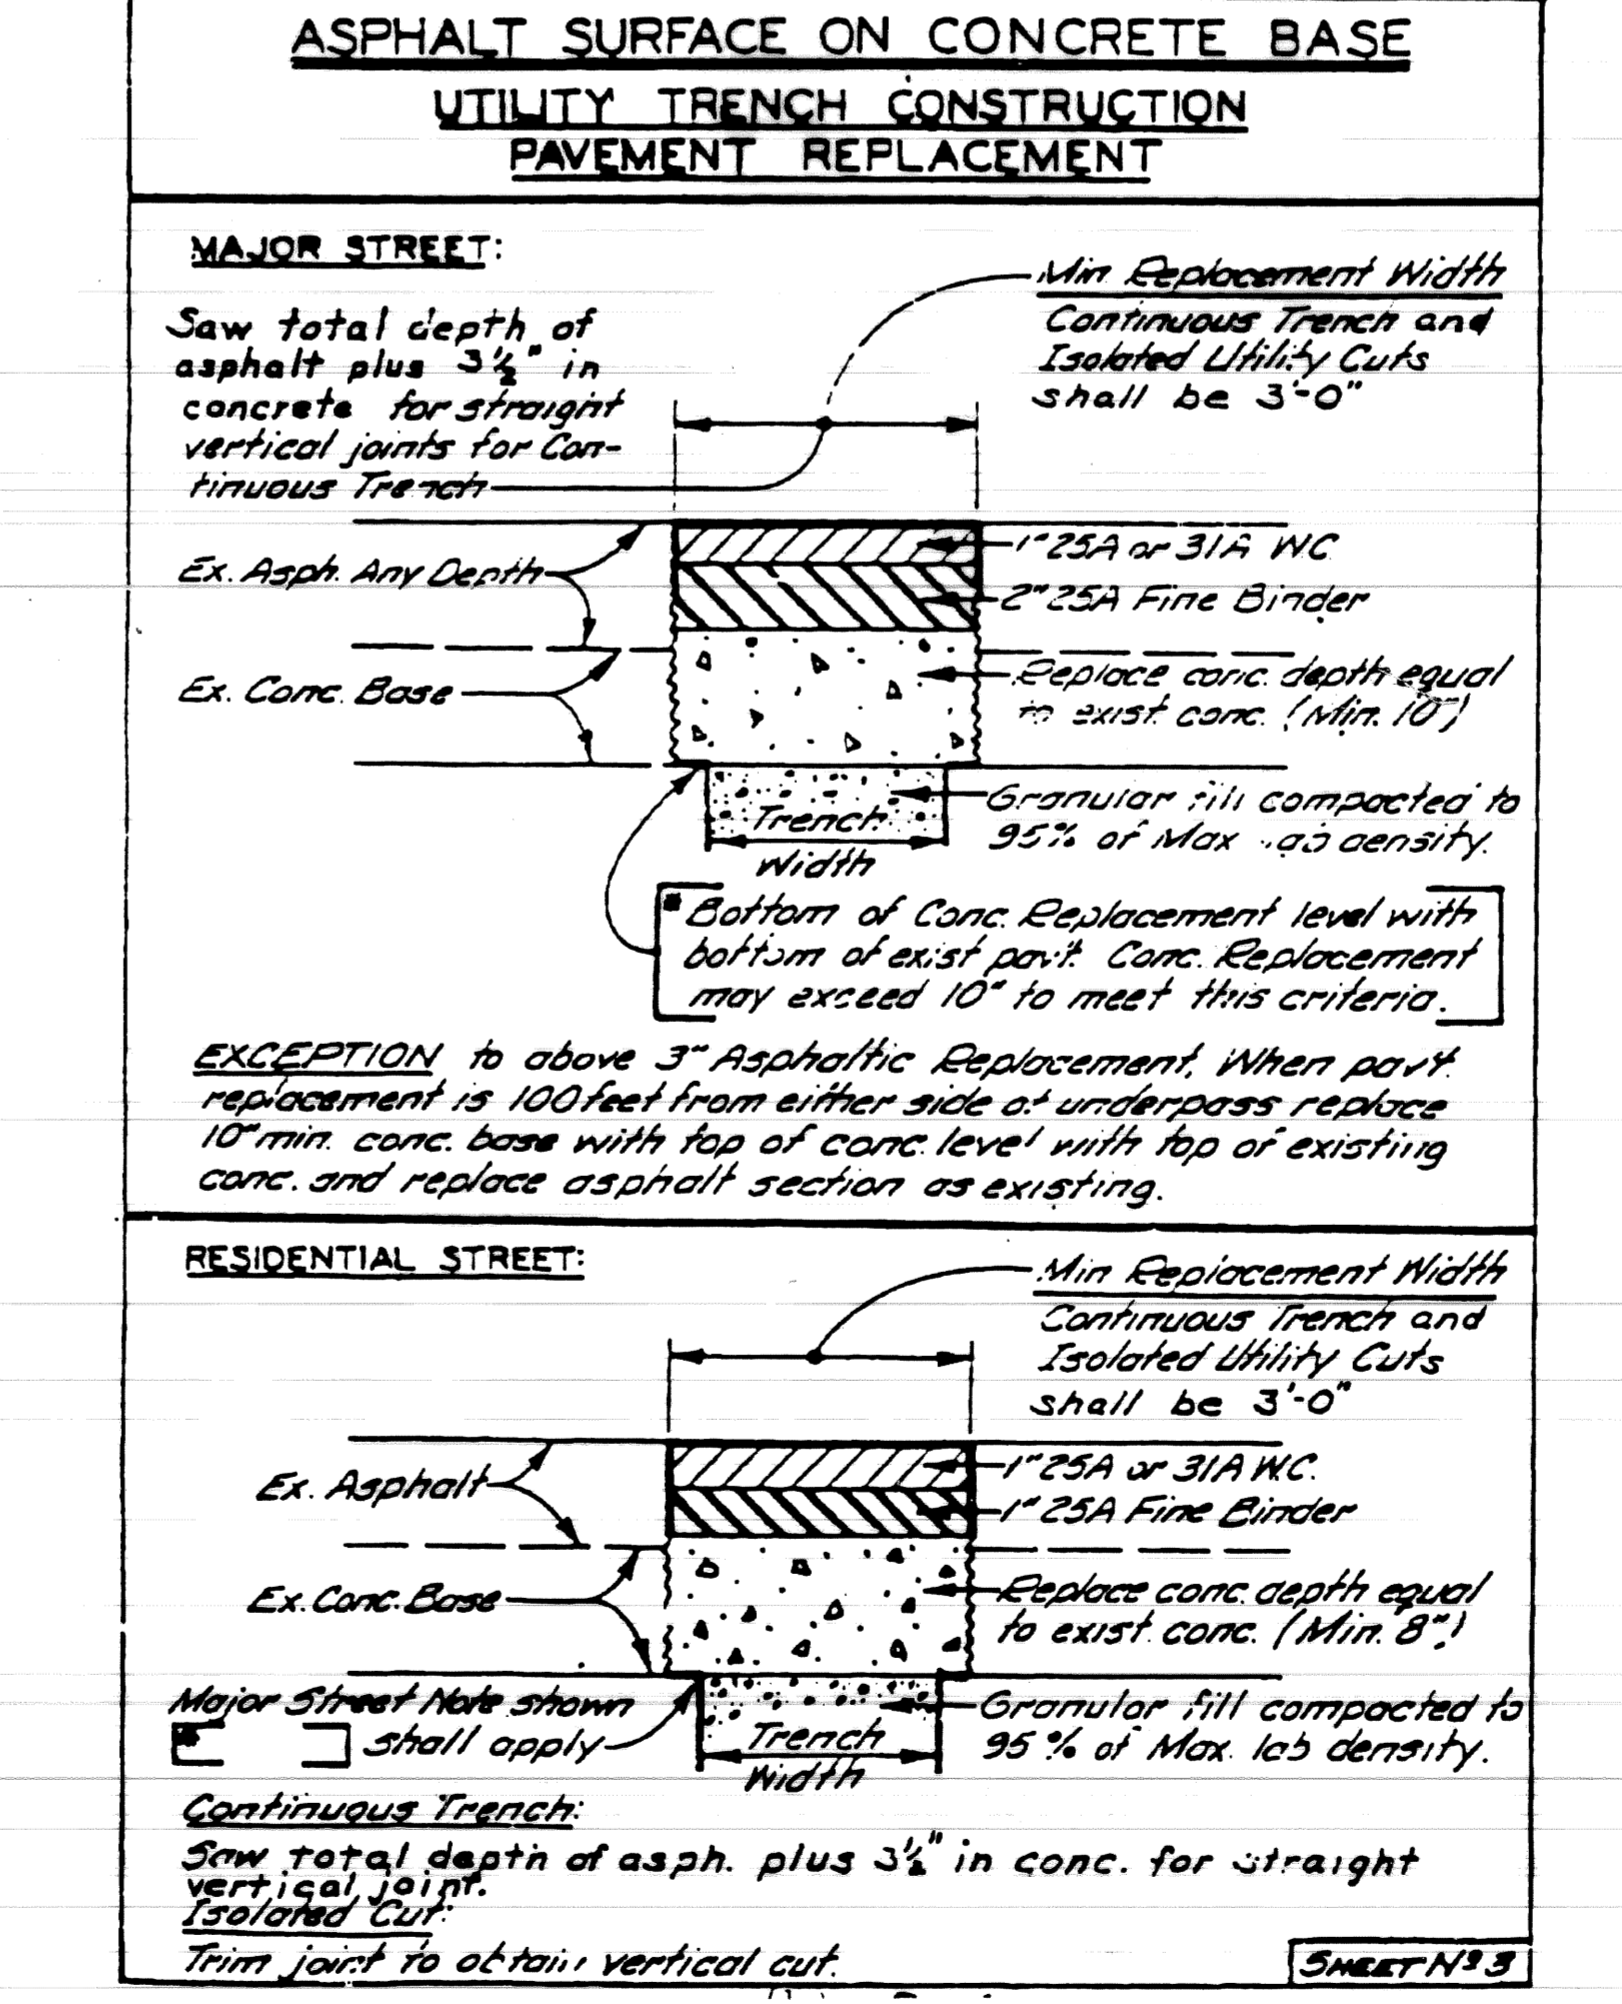 ASPHALT SURFACE ON CONCRETE BASE
UTILITY TRENCH CONSTRUCTION
PAVEMENT REPLACEMENT
MAJOR STREET:
Saw total depth of
asphalt plus 3½" in
concrete for straight
vertical joints for Con-
tinuous Trench
Min Replacement Width
Continuous Trench and
Isolated Utility Cuts
shall be 3'-0"
Ex. Asph. Any Depth
1" 25A or 31A W.C
2" 25A Fine Binder
Ex. Conc. Base
Replace conc. depth equal
to exist conc. (Min. 10")
Granular fill compacted to
95% of Max lab density.
Trench
Width
* Bottom of Conc. Replacement level with
bottom of exist pav't. Conc. Replacement
may exceed 10" to meet this criteria.
EXCEPTION to above 3" Asphaltic Replacement. When pav't.
replacement is 100 feet from either side of underpass replace
10" min. conc. base with top of conc. level with top of existing
conc. and replace asphalt section as existing.
RESIDENTIAL STREET:
Min Replacement Width
Continuous Trench and
Isolated Utility Cuts
shall be 3'-0"
Ex. Asphalt
1" 25A or 31A W.C.
1" 25A Fine Binder
Ex. Conc. Base
Replace conc. depth equal
to exist. conc. (Min. 8".)
Major Street Note shown
* shall apply
Granular fill compacted to
95% of Max. lab density.
Trench
Width
Continuous Trench:
Saw total depth of asph. plus 3½" in conc. for straight
vertical joint.
Isolated Cut:
Trim joint to obtain vertical cut.
SHEET Nº 3